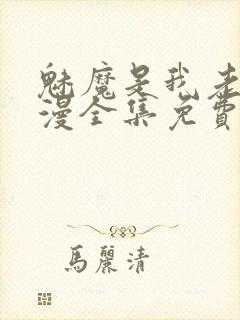 魅魔是我老
漫全集免費
馬麗清